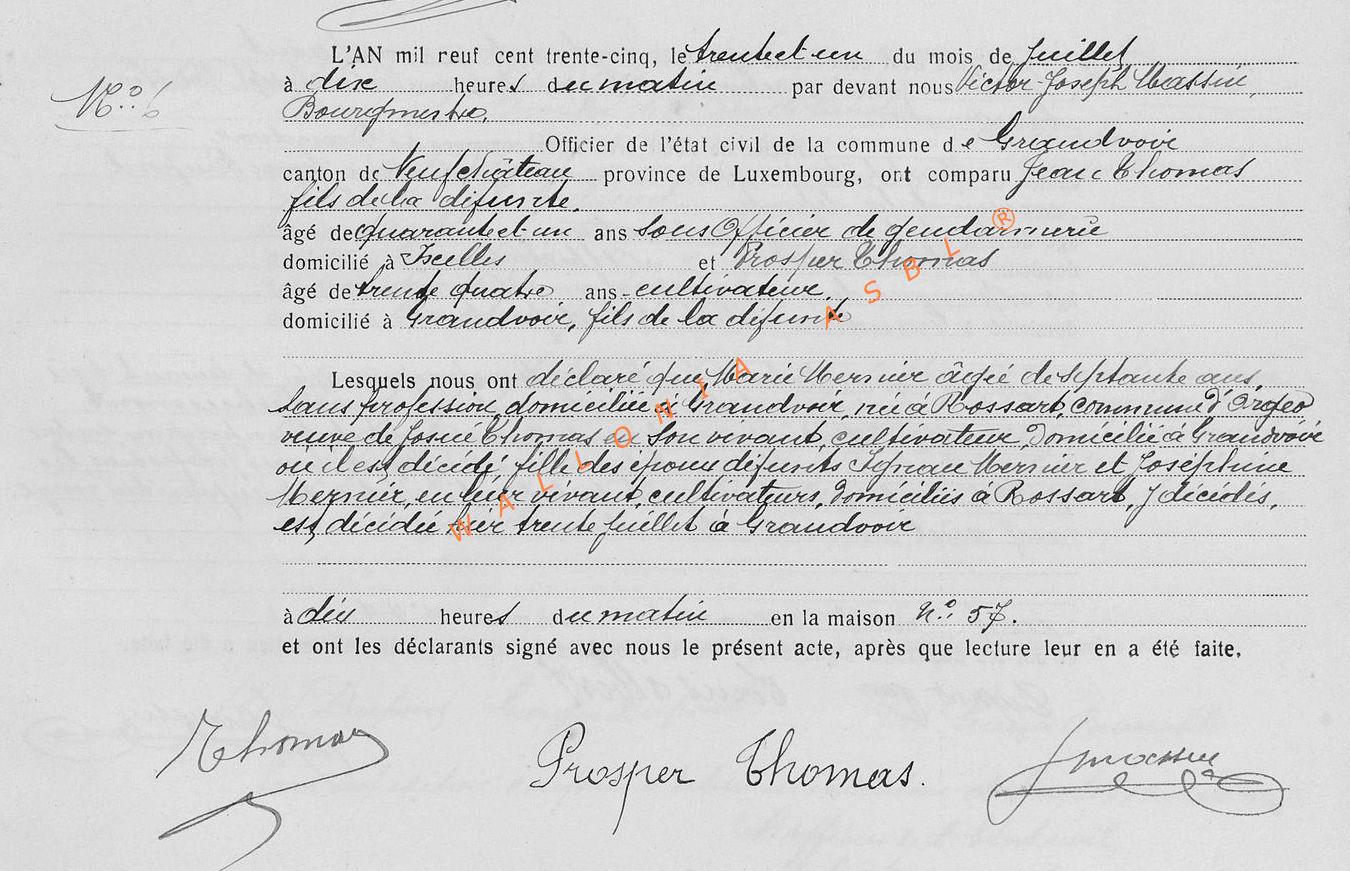 L'AN mil neuf cent trente-cinq, le trente et un du mois de Juillet
à dix heures du matin par devant nous Victor-Joseph Massin,
Nº. 6
Bourgmestre,
Officier de l'état civil de la commune de Grandvoir
canton de Neufchâteau province de Luxembourg, ont comparu Jean Thomas
fils de la défunte,
âgé de quarante et un ans sous Officier de gendarmerie
domicilié à Ixelles et Prosper Thomas
âgé de trente quatre ans - cultivateur,
domicilié à Grandvoir, fils de la défunte
Lesquels nous ont déclaré que Marie Mernier âgée de septante ans,
sans profession, domiciliée à Grandvoir, née à Rossart, commune d'Orgeo
veuve de Josué Thomas en son vivant, cultivateur, domicilié à Grandvoir
où il est décédé, fille des époux défunts Ignace Mernier et Joséphine
Mernier, en leur vivant, cultivateurs, domiciliés à Rossart, y décédés,
est décédée hier trente Juillet à Grandvoir
WALLONIA ASBL ®
à dix heures du matin en la maison Nº. 57.
et ont les déclarants signé avec nous le présent acte, après que lecture leur en a été faite,
Thomas
Prosper Thomas.
Massin